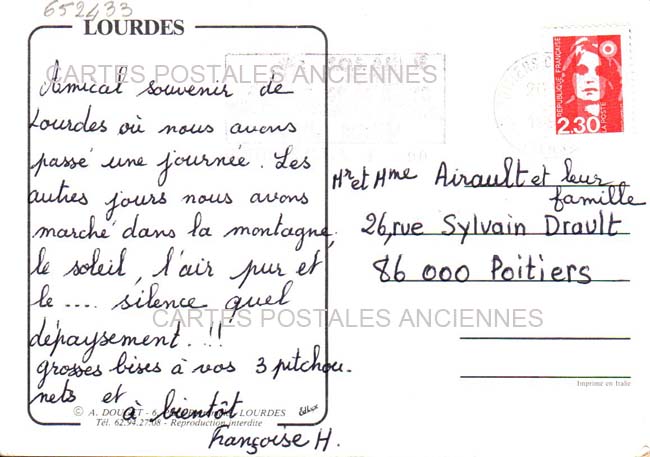 652433
LOURDES
CARTES POSTALES ANCIENNES
Amical souvenir de
Lourdes où nous avons
passé une journée. Les
autres jours nous avons
marché dans la montagne,
le soleil, l'air pur et
le .... silence quel
dépaysement. !!!
grosses bises à vos 3 pitchou-
nets et
à bientôt
Françoise H.
© A. DOUCET - 6, LOURDES
Tél. 62.94.27.08 - Reproduction interdite
RÉPUBLIQUE FRANÇAISE
2,30
LA POSTE
Mr et Mme Airault et leur
famille
26, rue Sylvain Drault
86 000 Poitiers
CARTES POSTALES ANCIENNES
Imprimé en Italie